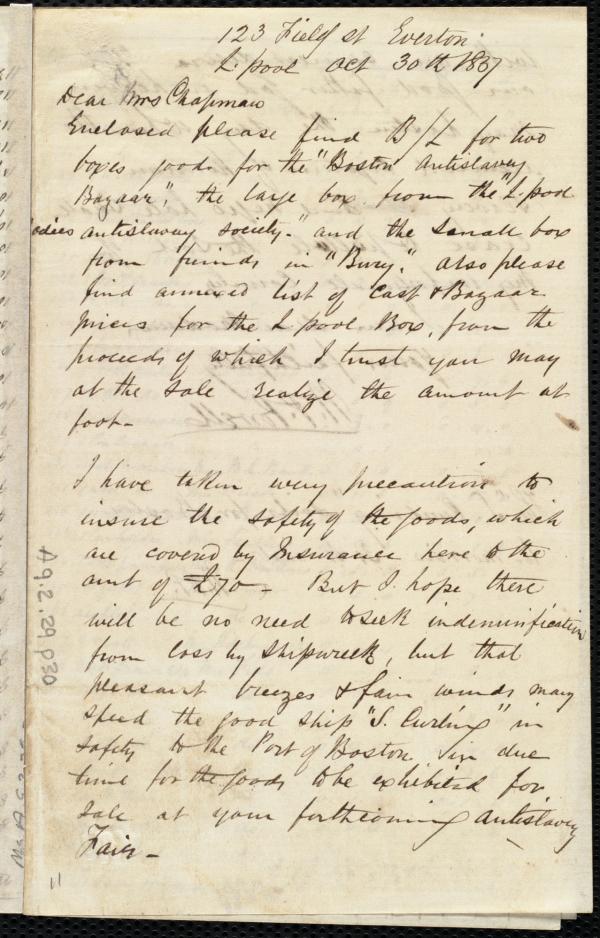 123 Field st Everton
L.pool Oct 30th 1857
Dear Mrs Chapman
Enclosed please find B/L for two
boxes goods for the "Boston antislavery
Bazaar", the large box from the "L.pool
Ladies antislavery society." and the small box
from friends in "Bury". also please
find annexed list of Cost & Bazaar
prices for the L pool Box, from the
proceeds of which I trust you may
at the sale realize the amount at
foot-
I have taken every precaution to
insure the safety of the goods, which
are covered by Insurance here to the
amt of £70- But I hope there
will be no need to seek indemnification
from loss by shipwreck, but that
pleasant breezes & fair winds may
speed the good ship "S. Curling" in
safety to the Port of Boston in due
time for the goods to be exhibited for
sale at your forthcoming antislavery
Fair-
A9.2.29 p30
11